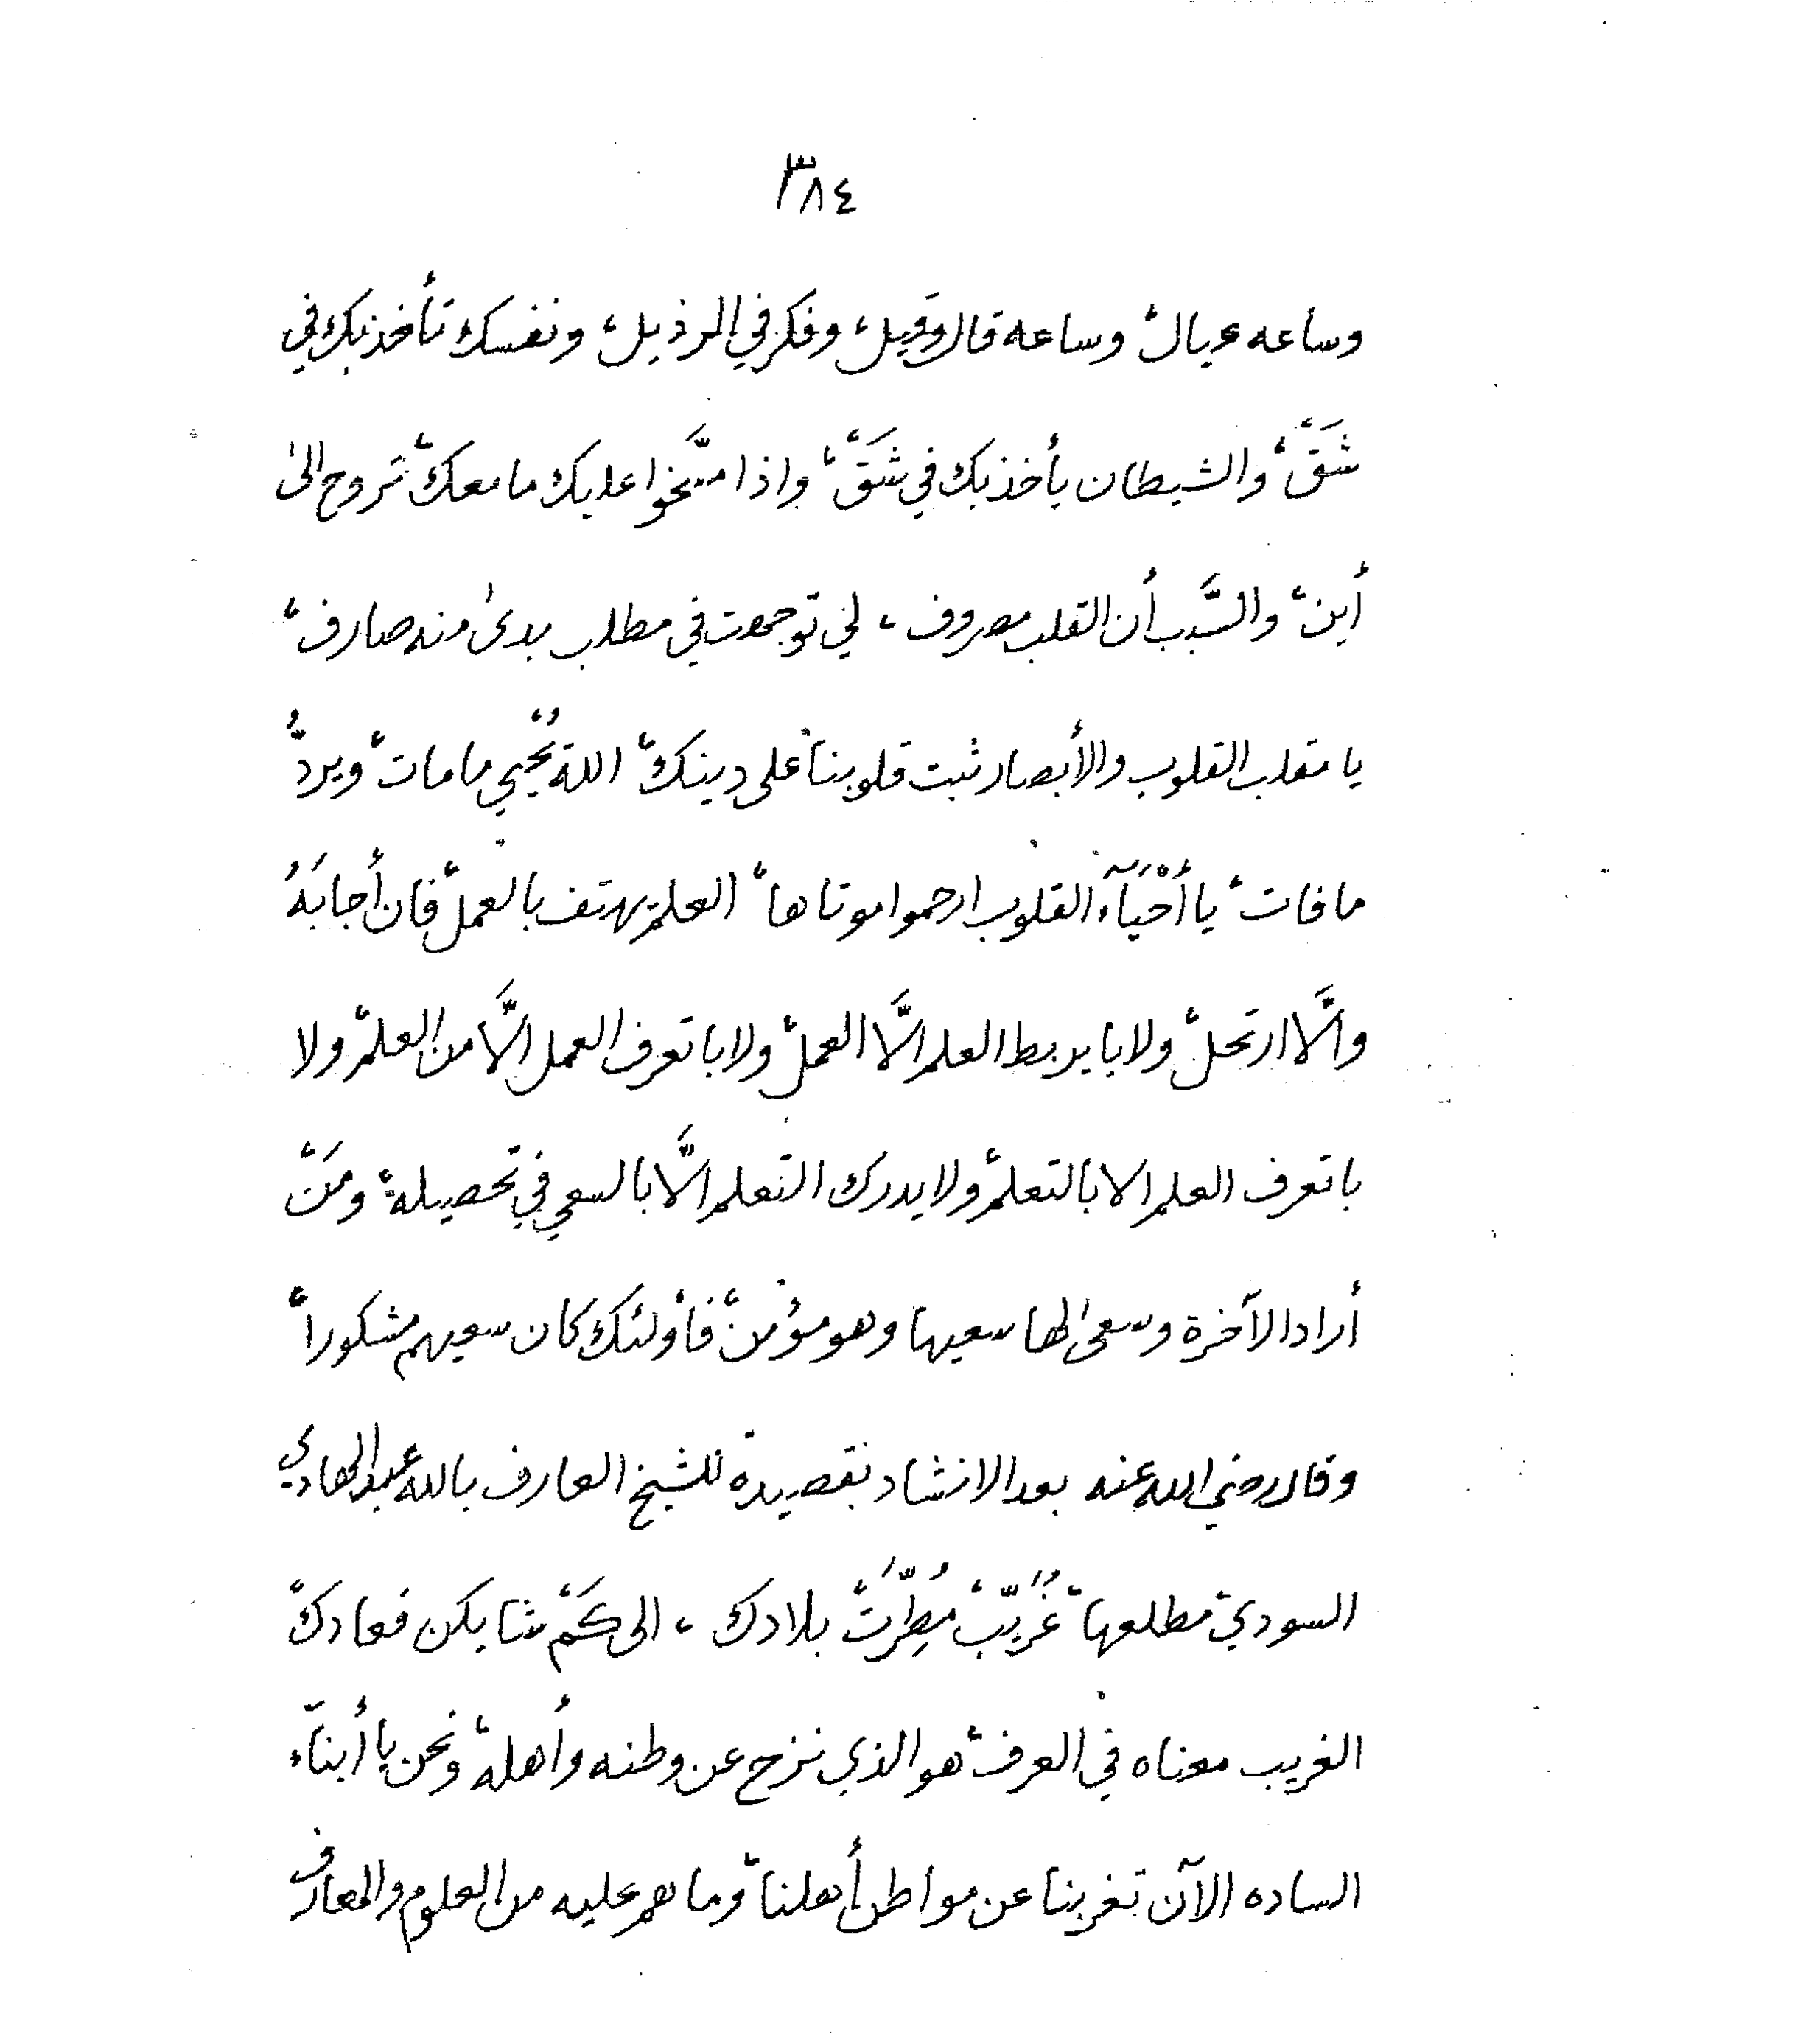 ٣٨٤
وساعه عيال، وساعة قال وقيل، وفكر في الرذيل، ونفسك تأخذبك في
شَقّ، والشيطان يأخذبك في شَقّ، واذا مسّخوا عليك ما معك، تروح الىٰ
أين، والسَّبب أن القلب مصروف، لي توجهت في مطلب بدىٰ منه صارف،
يا مقلب القلوب والأبصار ثبت قلوبنا على دينك، الله يُحْيي مامات، ويردُّ
ما فات، يا أَحْيَآء القلوب ارحموا موتاها، العلم يهتف بالعمل، فان أجابَهُ
والَّا ارتحل، ولا با يربط العلم الَّا العمل، ولا با تعرف العمل الَّا من العلم، ولا
با تعرف العلم الا بالتعلم، ولا يدرك التعلم الَّا بالسعي في تحصيله، ومَنْ
أراد الآخرة وسعىٰ لها سعيها وهو مؤمن، فأولئك كان سعيهم مشكوراً،
وقال رضي الله عنه بعد الانشاد بقصيدة للشيخ العارف بالله عبدالهادي
السودي، مطلعها، غُرَيّبْ مُطِّرَتْ بلادك، الى كَمْ شا يكن فعادك،
الغريب معناه في العرف، هو الذي نزح عن وطنه وأهله، ونحن يا أبنآء
الساده الآن تغربنا عن مواطن أهلنا، وما هم عليه من العلوم والمعارف